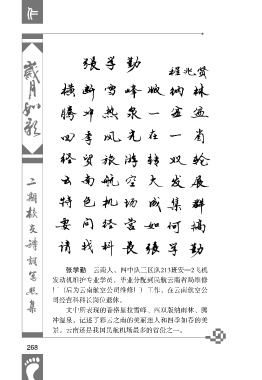 作
岁月如歌
二期校友诗词写照集
张学勤
程兆贤
横断雪峰版纳林
腾冲热泉一盆盆
四季风光在一省
经贸旅游转双轮
云南航空大发展
特色机场成集群
要问经营如何搞
请找科长张学勤
张学勤 云南人,四中队二区队213班安—2飞机
发动机维护专业学员,毕业分配到民航云南省局维修
厂(后为云南航空公司维修厂)工作,在云南航空公
司经营科科长岗位退休。
文中所表现的香格里拉雪峰、西双版纳雨林、腾
冲温泉,记述了彩云之南的美丽迷人和四季如春的美
景。云南还是我国民航机场最多的省份之一。
268